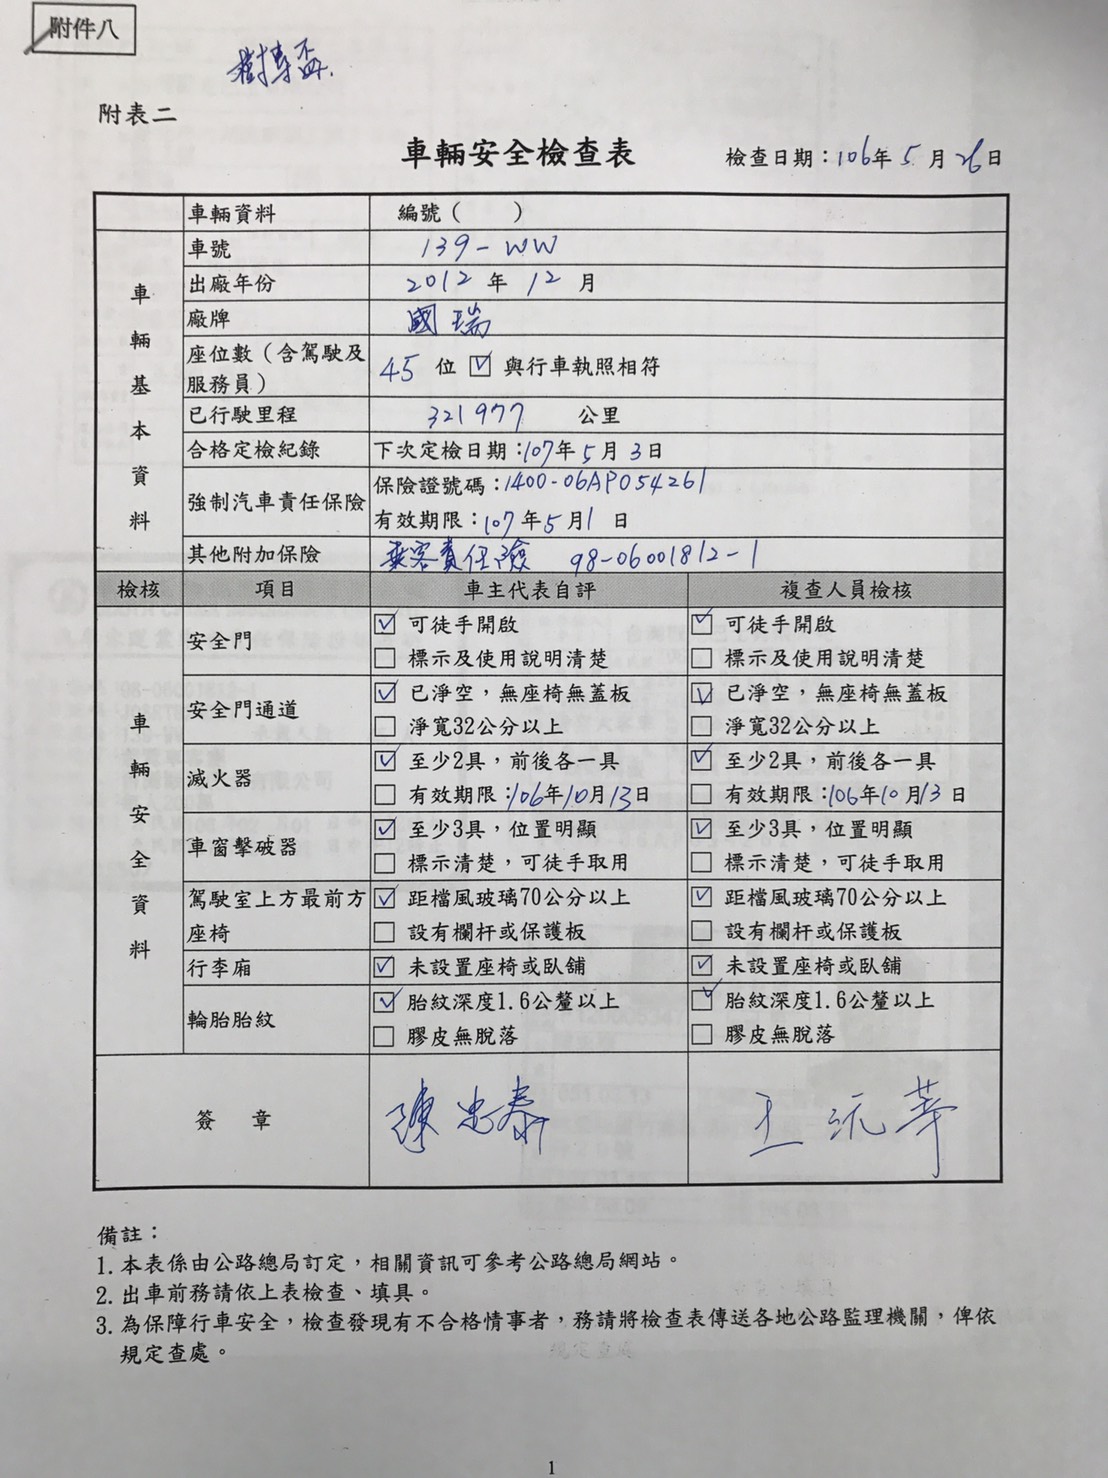 附件八
樹專盃.
附表二
車輛安全檢查表 檢查日期：106年5月26日
車輛資料 編號（ ）
車輛基本資料
車號 139-WW
出廠年份 2012年12月
廠牌 國瑞
座位數（含駕駛及服務員） 45位 ☑ 與行車執照相符
已行駛里程 321977 公里
合格定檢紀錄 下次定檢日期：107年5月3日
強制汽車責任保險 保險證號碼：1400-06AP054261
有效期限：107年5月1日
其他附加保險 乘客責任險 98-06001812-1
檢核 項目 車主代表自評 複查人員檢核
車輛安全資料
安全門 ☑ 可徒手開啟 ☑ 可徒手開啟
☐ 標示及使用說明清楚 ☐ 標示及使用說明清楚
安全門通道 ☑ 已淨空，無座椅無蓋板 ☑ 已淨空，無座椅無蓋板
☐ 淨寬32公分以上 ☐ 淨寬32公分以上
滅火器 ☑ 至少2具，前後各一具 ☑ 至少2具，前後各一具
☐ 有效期限：106年10月13日 ☐ 有效期限：106年10月13日
車窗擊破器 ☑ 至少3具，位置明顯 ☑ 至少3具，位置明顯
☐ 標示清楚，可徒手取用 ☐ 標示清楚，可徒手取用
駕駛室上方最前方座椅 ☑ 距檔風玻璃70公分以上 ☑ 距檔風玻璃70公分以上
☐ 設有欄杆或保護板 ☐ 設有欄杆或保護板
行李廂 ☑ 未設置座椅或臥舖 ☑ 未設置座椅或臥舖
輪胎胎紋 ☑ 胎紋深度1.6公釐以上 ☑ 胎紋深度1.6公釐以上
☐ 膠皮無脫落 ☐ 膠皮無脫落
簽章 陳忠泰 王沅莘
備註：
1. 本表係由公路總局訂定，相關資訊可參考公路總局網站。
2. 出車前務請依上表檢查、填具。
3. 為保障行車安全，檢查發現有不合格情事者，務請將檢查表傳送各地公路監理機關，俾依
規定查處。
1